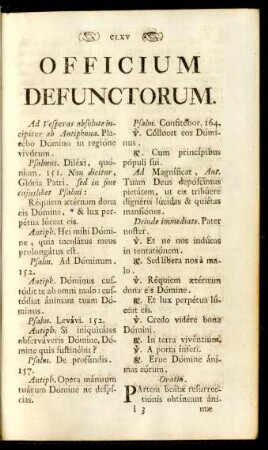 CLXV
OFFICIUM
DEFUNCTORUM.
Ad Vesperas absolute in-
cipitur ab Antiphona. Pla-
cébo Dómino in regióne
vivórum.
Psalmus. Diléxi, quó-
niam. 151. Non dicitur,
Glória Patri. sed in fine
cujuslibet Psalmi:
Réquiem ætérnam dona
eis Dómine, * & lux per-
pétua lúceat eis.
Antiph. Hei mihi Dómi-
ne, quia incolátus meus
prolongátus est.
Psalm. Ad Dóminum.
152.
Antiph. Dóminus cus-
tódit te ab omni malo: cus-
tódiat ánimam tuam Dó-
minus.
Psalm. Levávi. 152.
Antiph. Si iniquitátes
observáveris Dómine, Dó-
mine quis sustinébit?
Psalm. De profúndis.
157.
Antiph. Opera mánuum
tuárum Dómine ne despí-
cias.
Psalm. Confitébor. 164.
℣. Cóllocet eos Dómi-
nus.
℟. Cum princípibus
pópuli sui.
Ad Magnificat, Ant.
Tuam Deus depóscimus
pietátem, ut eis tribúere
dignéris lúcidas & quiétas
mansiónes.
Deinde immediate. Pater
noster.
℣. Et ne nos indúcas
in tentatiónem.
℟. Sed líbera nos à ma-
lo.
℣. Réquiem ætérnam
dona eis Dómine.
℟. Et lux perpétua lú-
ceat eis.
℣. Credo vidére bona
Dómini.
℟. In terra vivéntium.
℣. A porta ínferi.
℟. Erue Dómine áni-
mas eórum.
Oratio.
PArtem beátæ resurrec-
tiónis obtíneant áni-
l 3
mæ